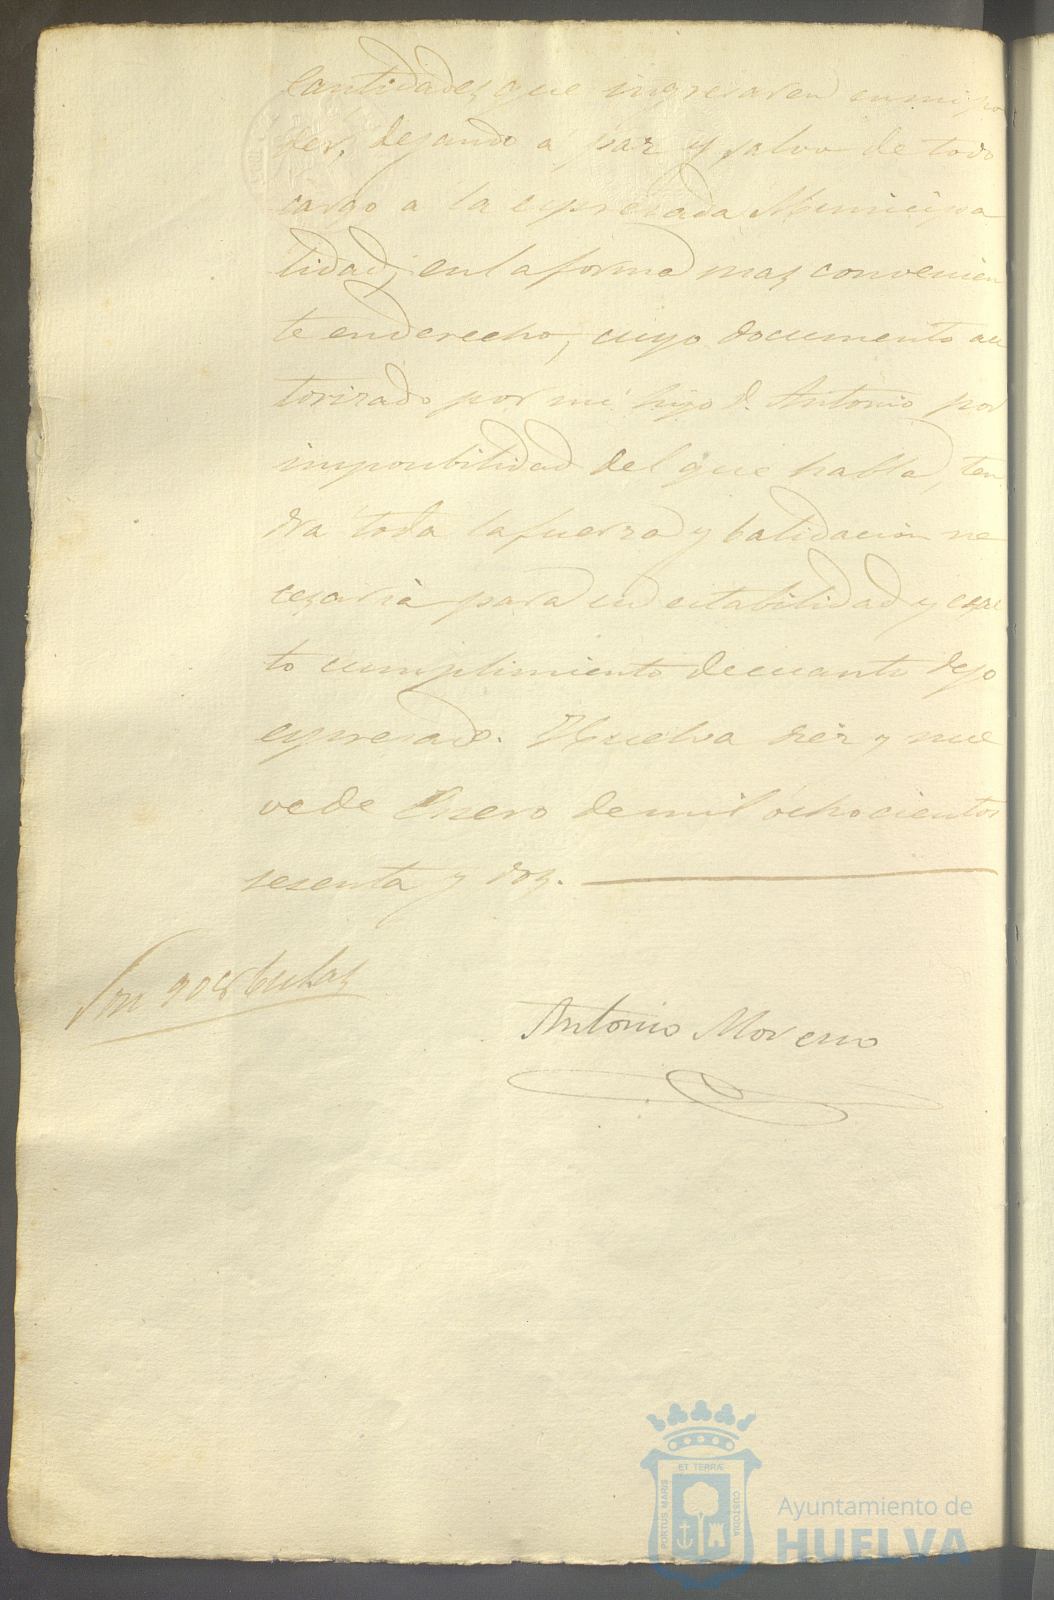 Cantidades que ingresaren en mi po
der, dejando á paz y salvo de todo
cargo a la espresada Municipa
lidad, en la forma mas convenien
te en derecho, cuyo documento au
torizado por mi hijo D. Antonio por
imposibilidad del que habla, ten
dra toda la fuerza y balidacion ne
cesaria para su estabilidad y esac
to cumplimiento de cuanto dejo
espresado. Huelva diez y nue
ve de Enero de mil ochocientos
sesenta y dos.
Antonio Moreno
ET TERRÆ
PORTUS MARIS
CUSTODIA
Ayuntamiento de
HUELVA